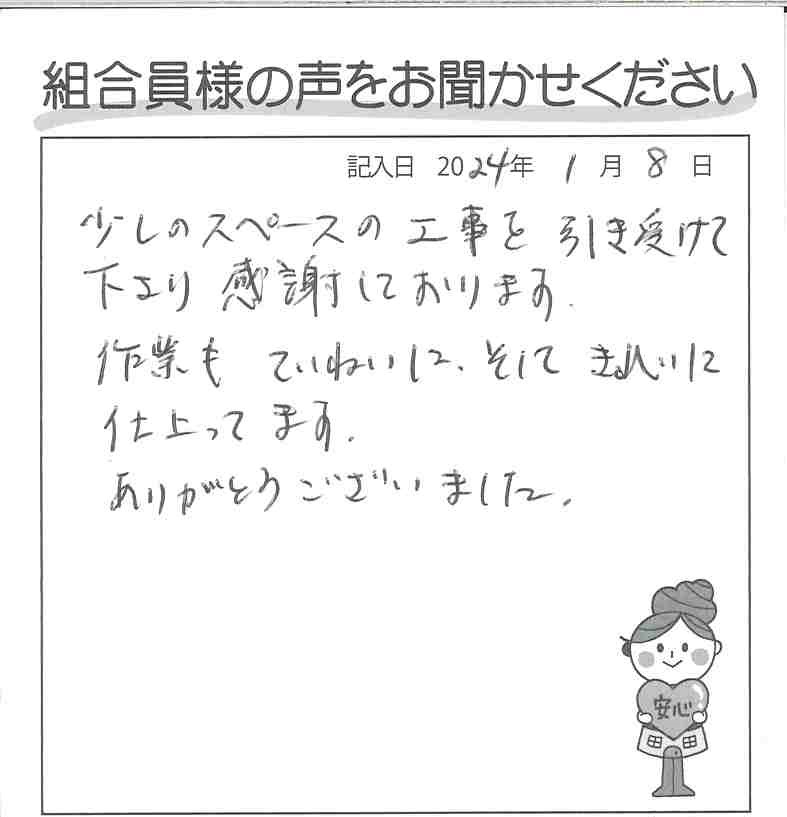 組合員様の声をお聞かせください
記入日 2024年 1月 8日
少しのスペースの工事を引き受けて
下さり感謝しております.
作業もていねいに、そしてきれいに
仕上ってます.
ありがとうございました.
安心